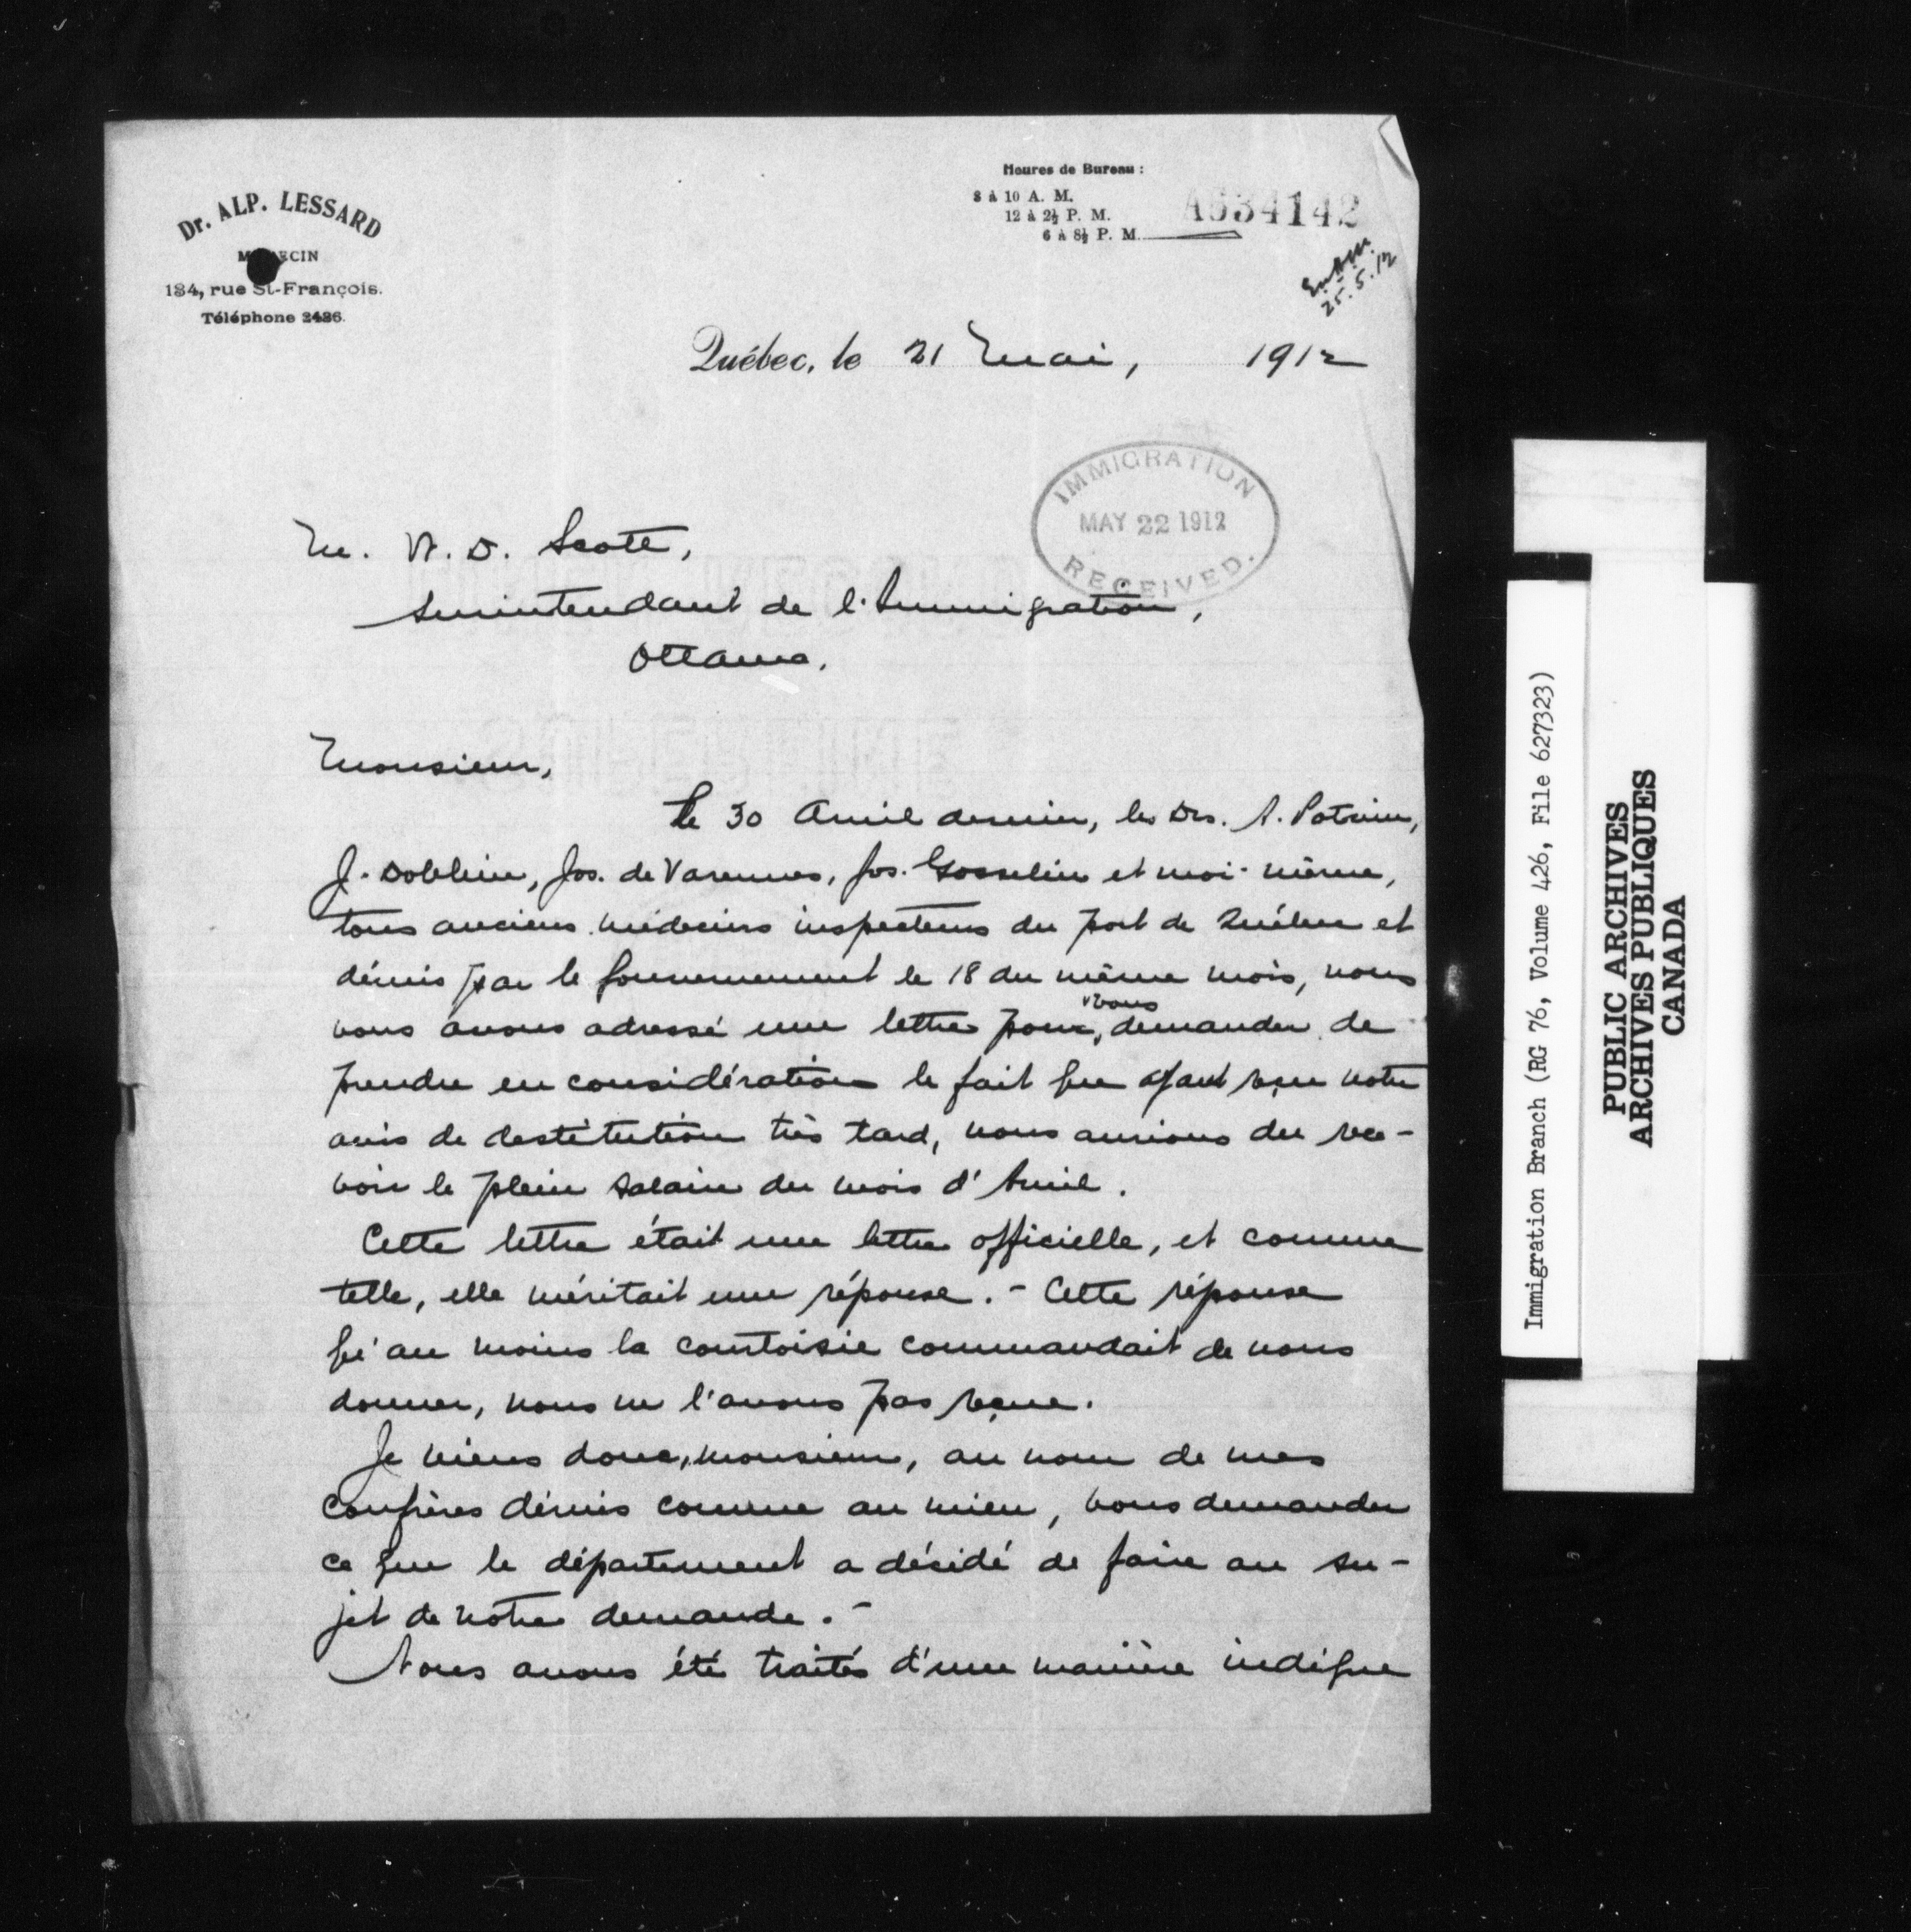 Dr. ALP. LESSARD
MÉDECIN
184, rue St-François.
Téléphone 2426.
Heures de Bureau :
8 à 10 A. M.
12 à 2½ P. M.
6 à 8½ P. M.
A534142
25.5.12
Québec, le 21 Mai, 1912
IMMIGRATION
MAY 22 1912
RECEIVED.
M. W. D. Scott,
Surintendant de l'Immigration,
Ottawa.
Monsieur,
Le 30 Avril dernier, les Drs. A. Potvin,
J. Dobbin, Jos. de Varennes, Jos. Gosselin et moi-même,
tous anciens médecins inspecteurs du port de Québec et
démis par le gouvernement le 18 du même mois, nous
vous avons adressé une lettre pour vous demander de
prendre en considération le fait que ayant reçu notre
avis de destitution très tard, nous aurions du rece-
voir le plein salaire du mois d'Avril.
Cette lettre était une lettre officielle, et comme
telle, elle méritait une réponse. - Cette réponse
qu'au moins la courtoisie commandait de nous
donner, nous ne l'avons pas reçue.
Je viens donc, monsieur, au nom de mes
confrères démis comme au mien, vous demander
ce que le département a décidé de faire au su-
jet de notre demande. -
Nous avons été traités d'une manière indigne
Immigration Branch (RG 76, Volume 426, File 627323)
PUBLIC ARCHIVES
ARCHIVES PUBLIQUES
CANADA